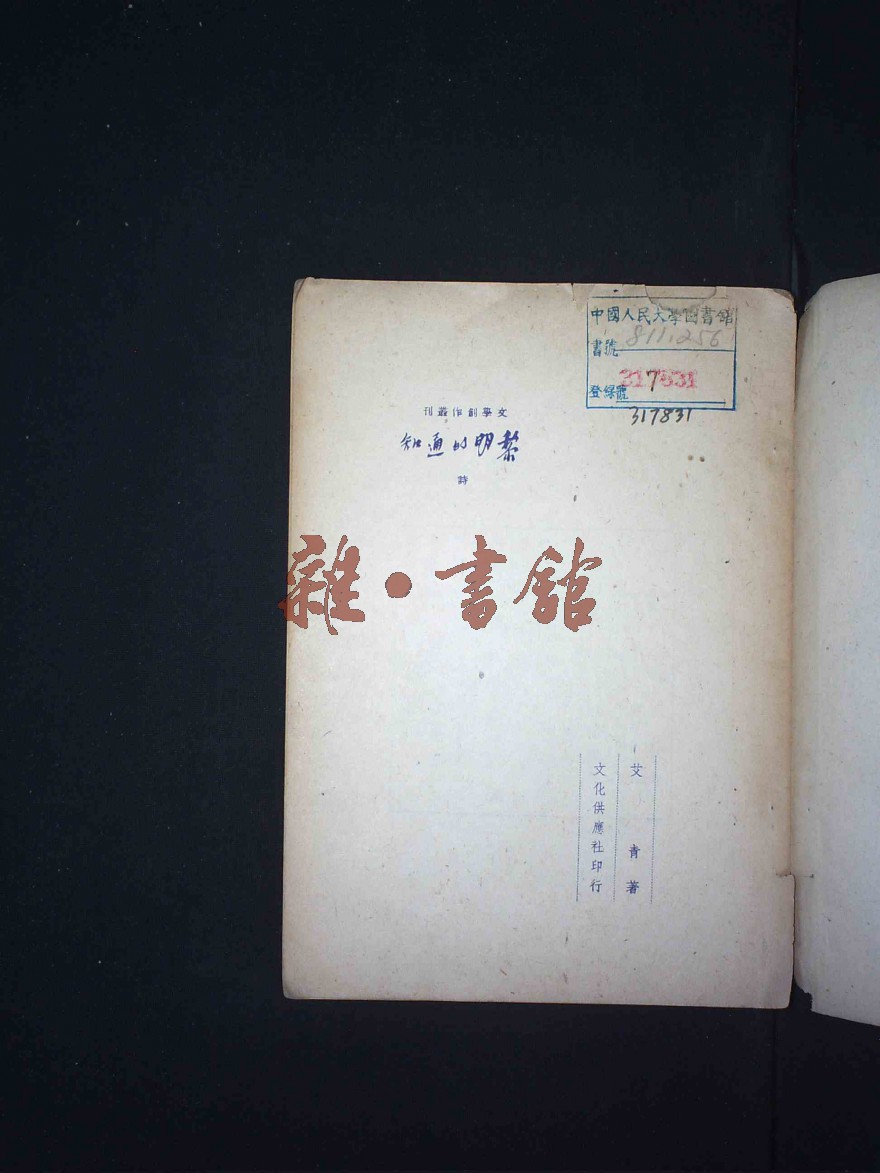 中國人民大學圖書館
書號 811.256
登錄號 317831
317831
文學創作叢刊
黎明的通知
詩
雜·書館
艾青著
文化供應社印行